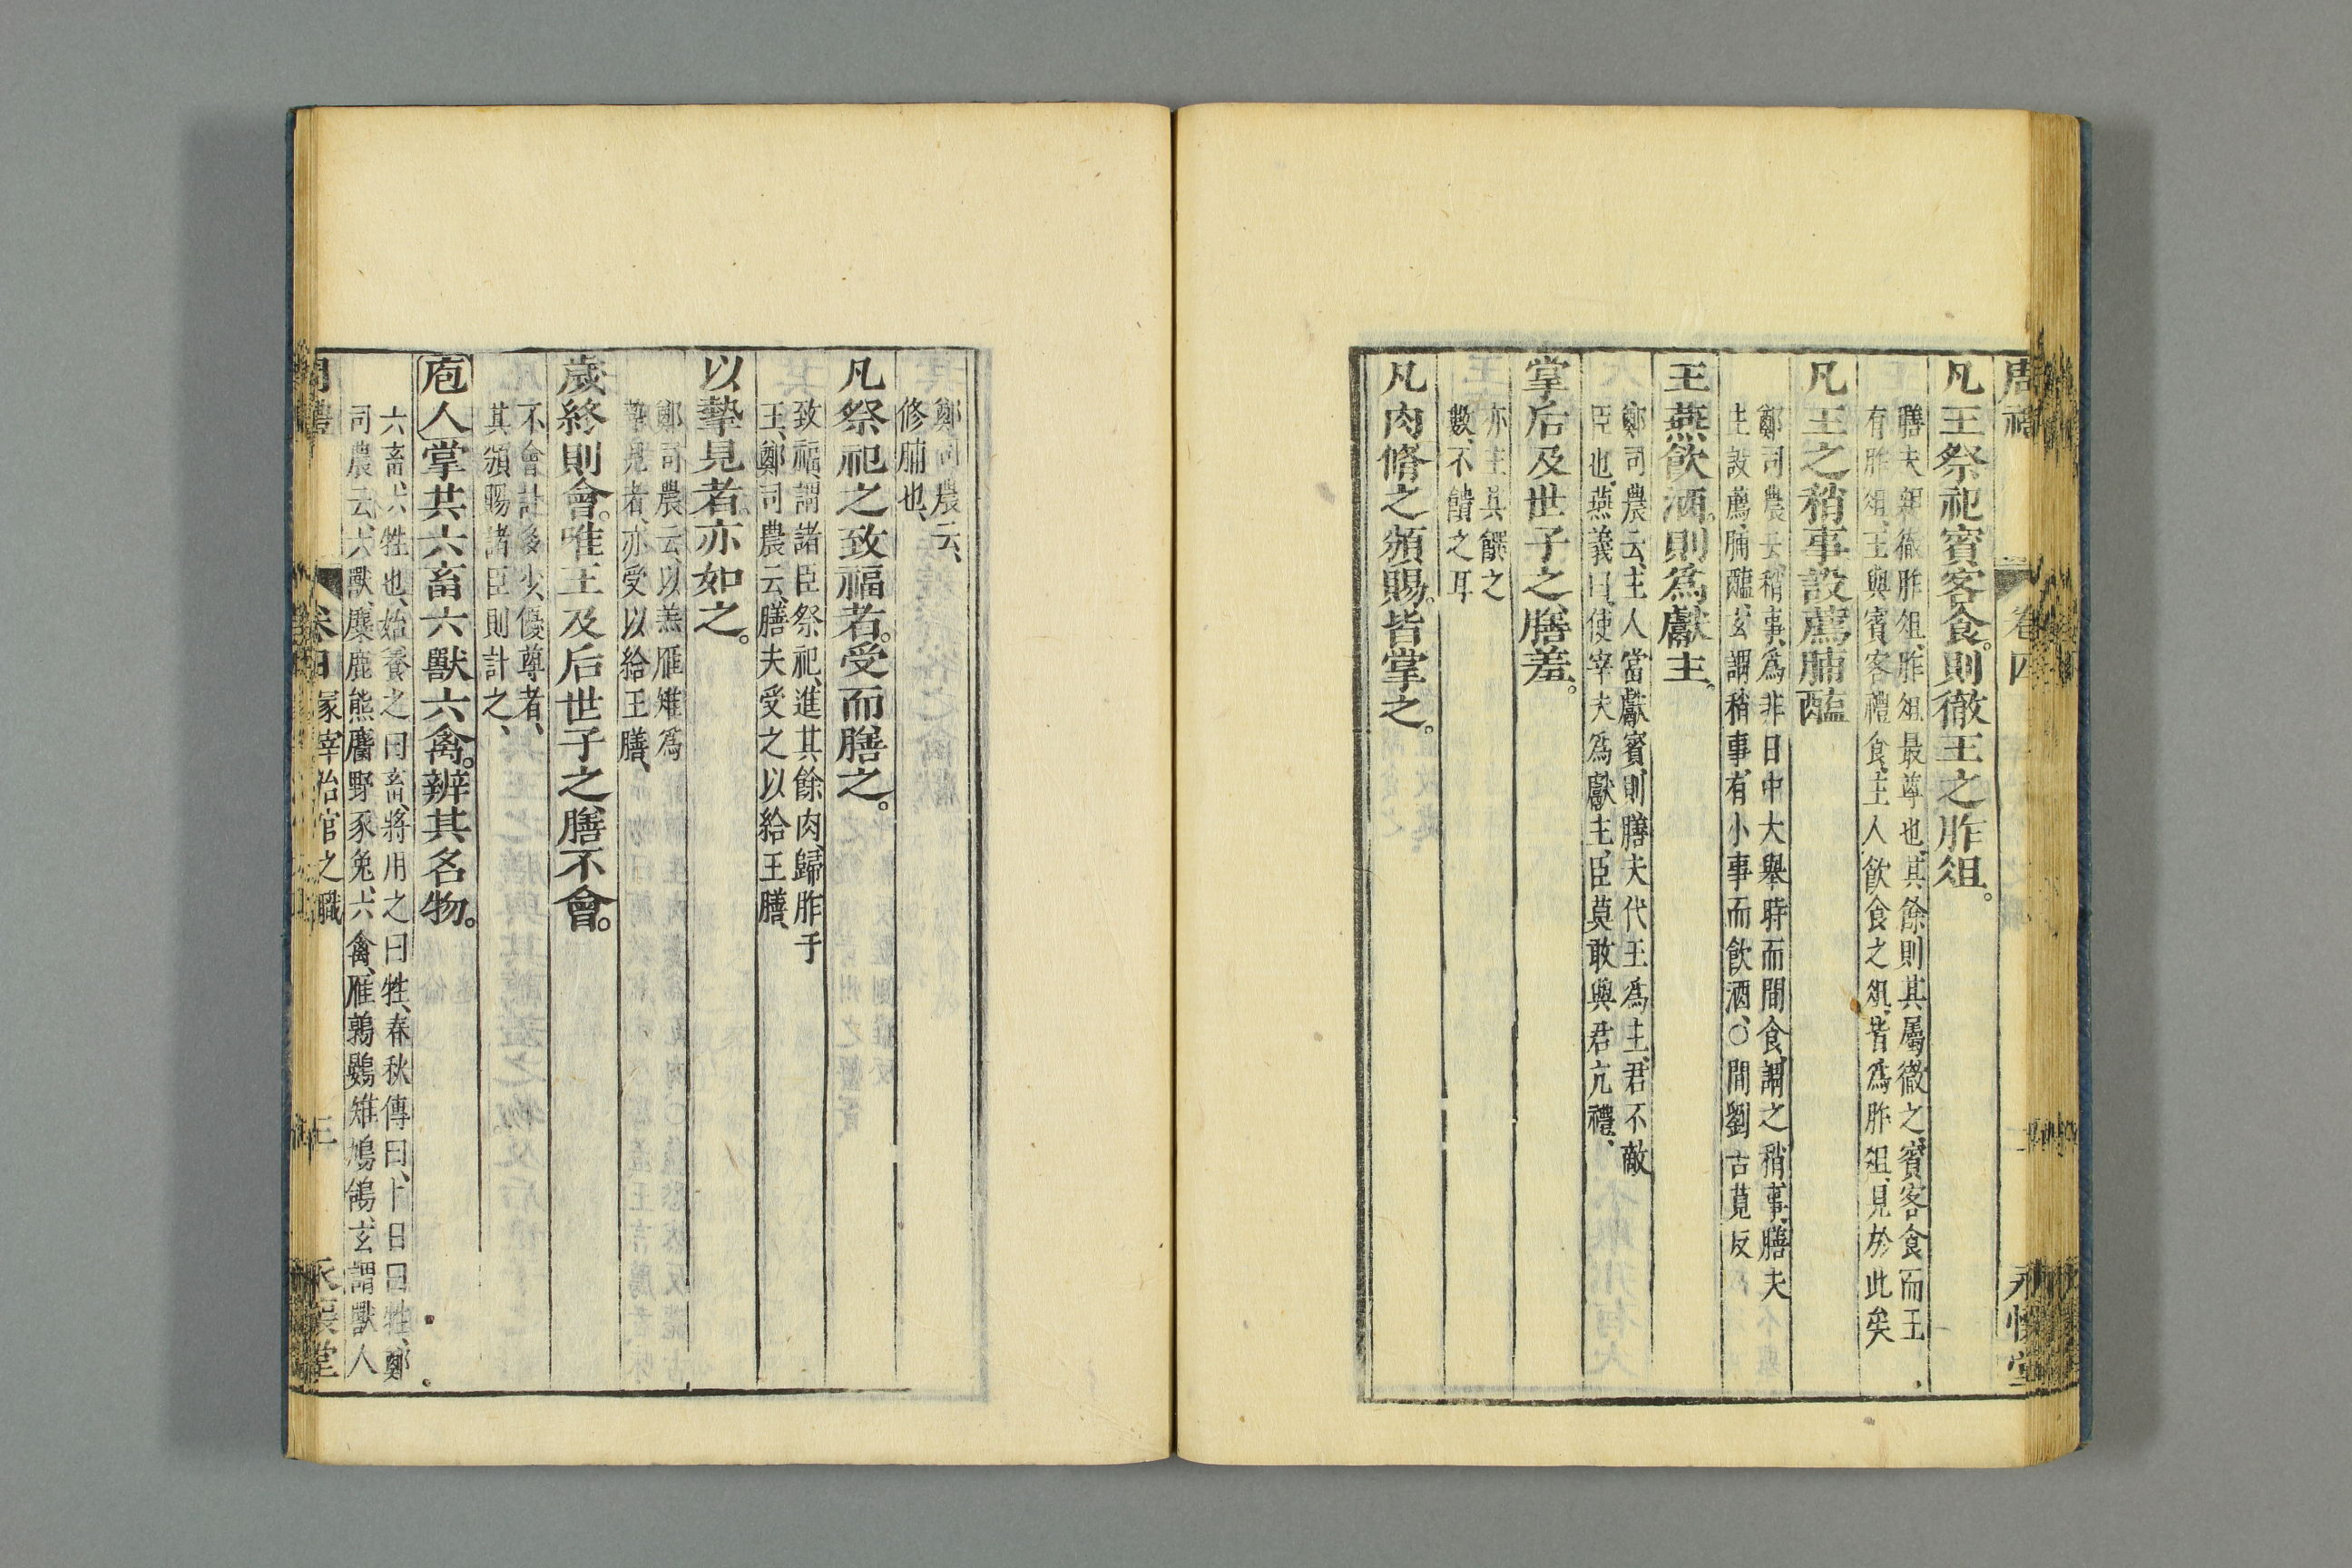 周禮 卷四 二 永懷堂
凡王祭祀賓客食。則徹王之胙俎。
膳夫親徹胙俎、胙俎最尊也、其餘則其屬徹之、賓客食而王
有胙俎、王與賓客禮食、主人飲食之俎、皆為胙俎、見於此矣
凡王之稍事設薦脯醢
鄭司農云、稍事、為非日中大舉時而間食、謂之稍事、膳夫
主設薦脯醢、玄謂稍事、有小事而飲酒、○間劉古莧反
王燕飲酒。則爲獻主。
鄭司農云、主人當獻賓、則膳夫代王爲主、君不敵
臣也、燕義曰、使宰夫爲獻主、臣莫敢與君亢禮、
掌后及世子之膳羞。
亦主其饌之
數、不饋之耳
凡肉脩之頒賜。皆掌之。
鄭司農云、
修脯也、
凡祭祀之致福者。受而膳之。
致福、謂諸臣祭祀、進其餘肉、歸胙于
王、鄭司農云、膳夫受之以給王膳、
以摯見者亦如之。
鄭司農云、以羔雁雉爲
摯見者、亦受以給王膳、
歲終則會。唯王及后世子之膳不會。
不會計多少、優尊者、
其頒賜諸臣則計之、
庖人掌共六畜六獸六禽。辨其名物。
六畜、六牲也、始養之曰畜、將用之曰牲、春秋傳曰、卜日曰牲、鄭
司農云、六獸、麋鹿熊麕野豕兔、六禽、雁鶉鷃雉鳩鴿、玄謂獸人
周禮 卷四 冢宰治官之職 三 永懷堂